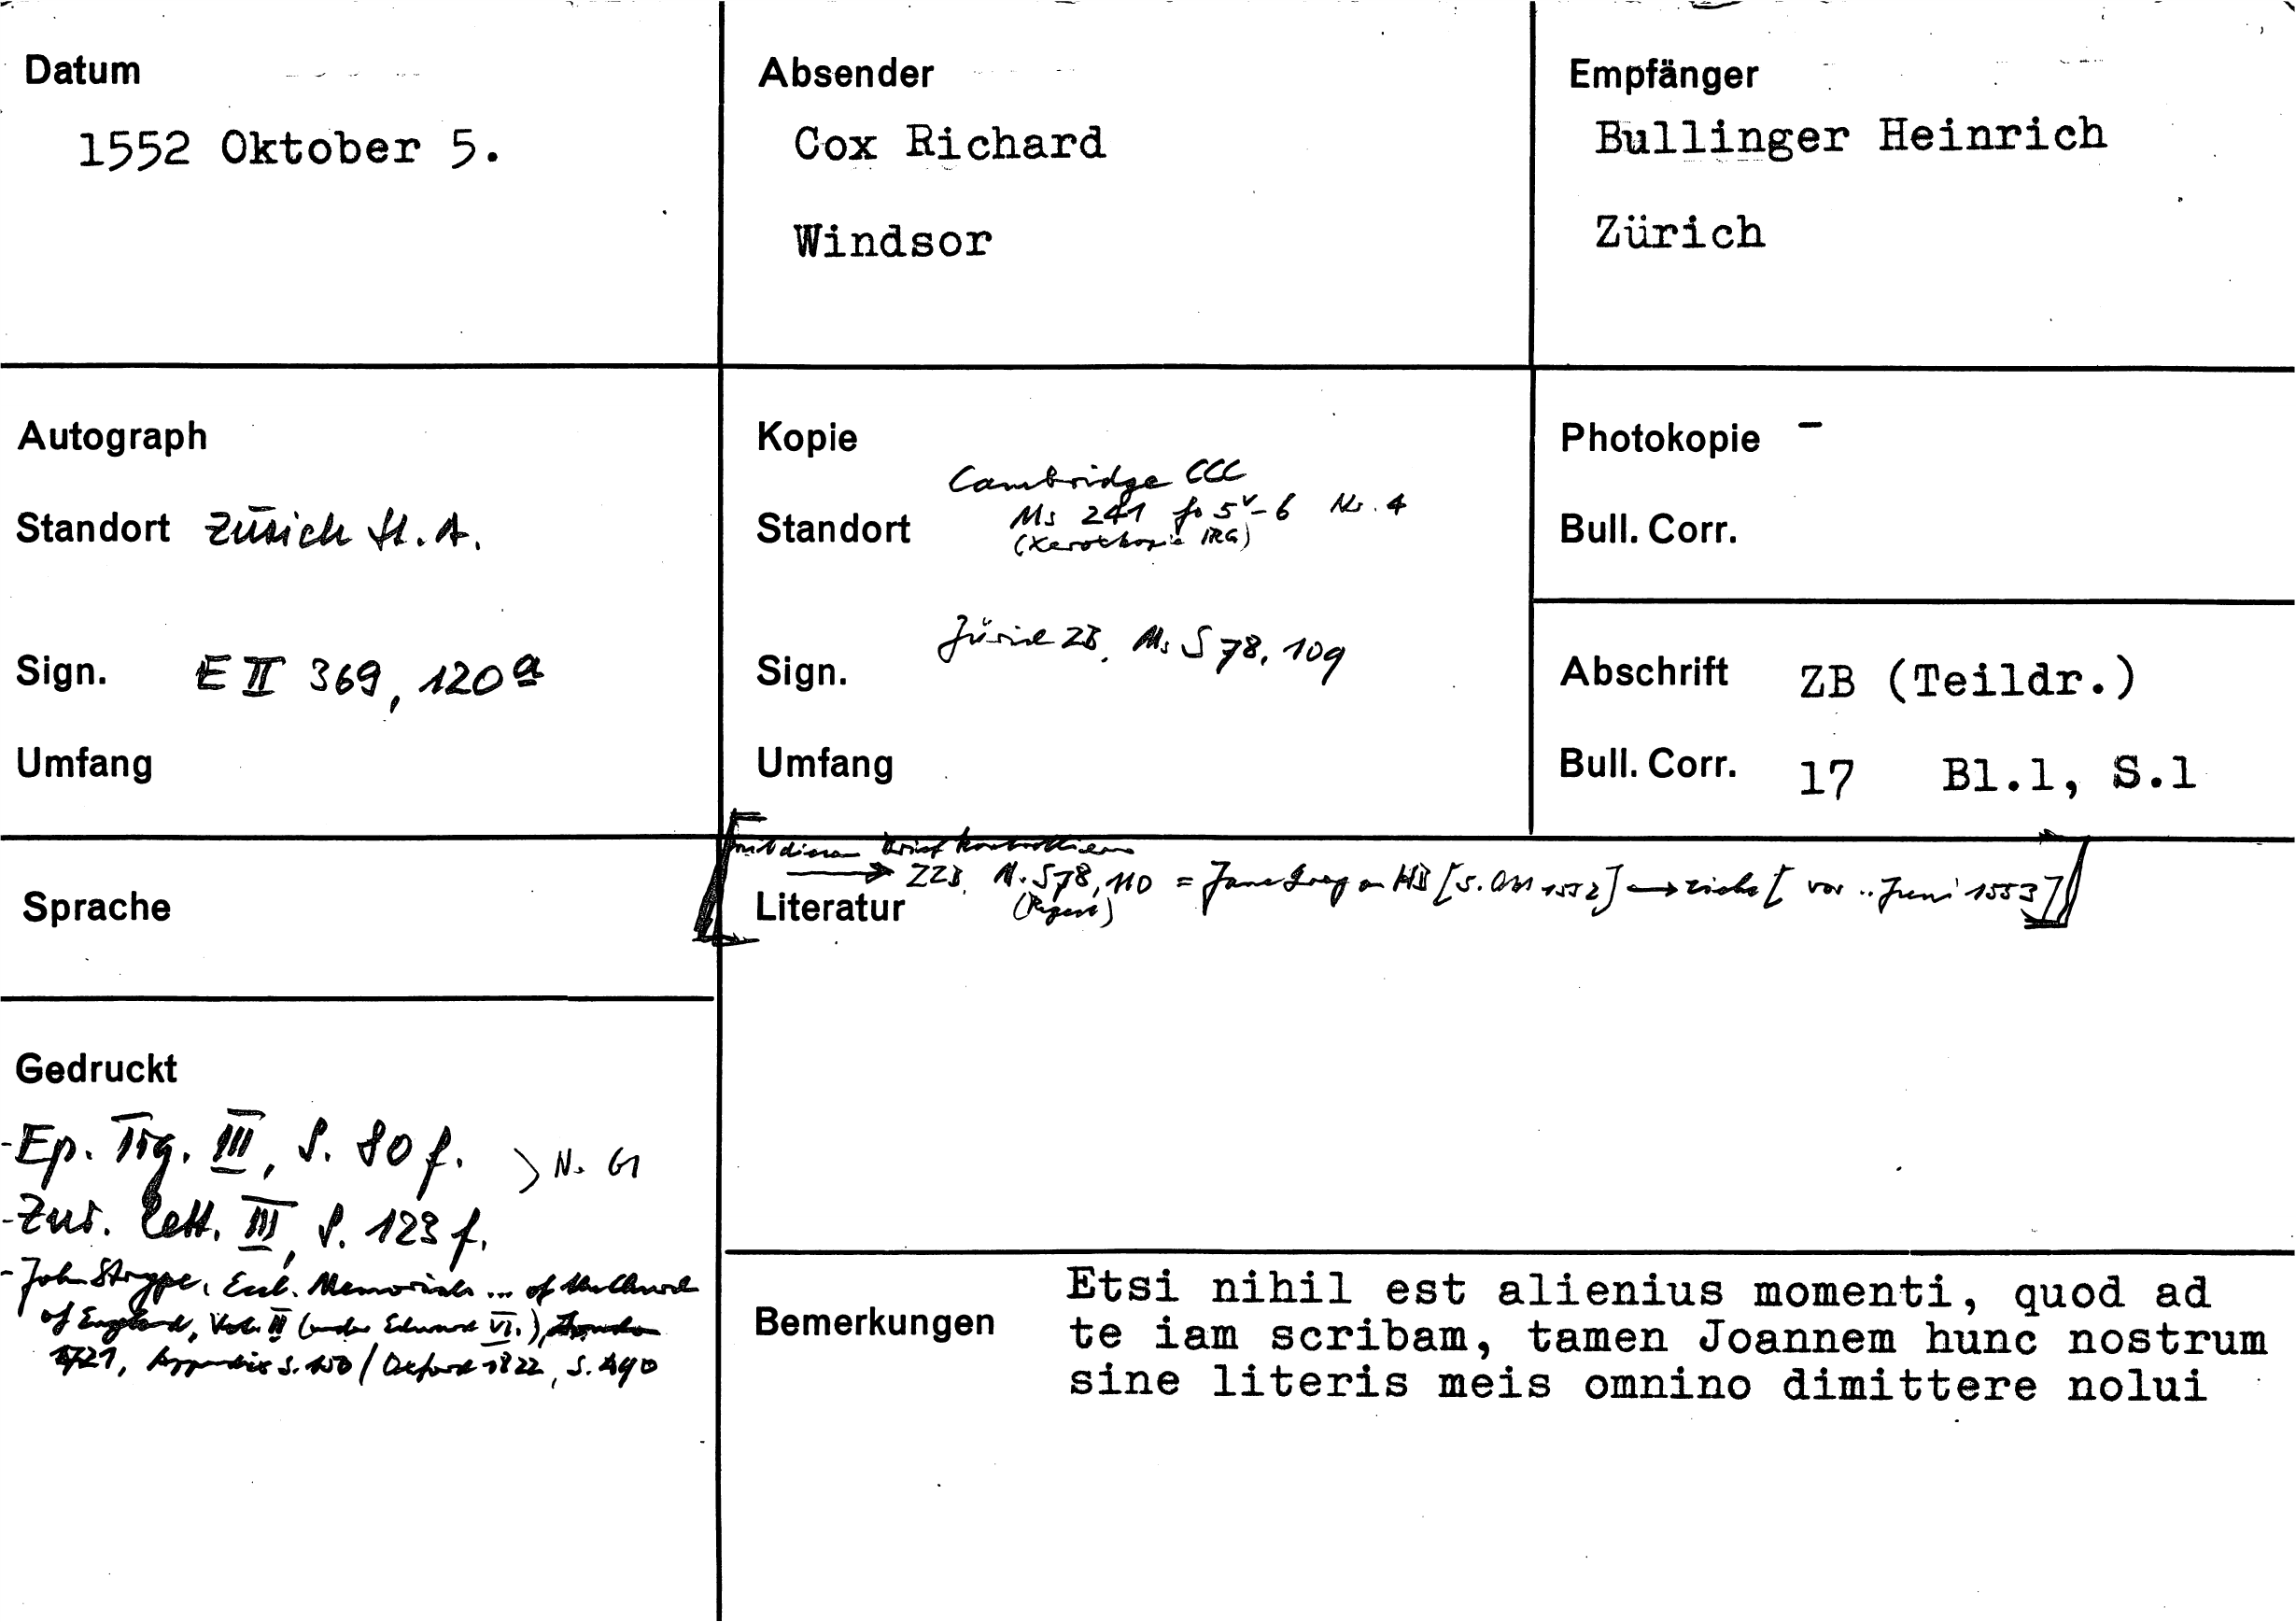 Datum
1552 Oktober 5.
Absender
Cox Richard
Windsor
Empfänger
Bullinger Heinrich
Zürich
Autograph
Standort Zürich St. A.
Sign. E II 369, 120a
Umfang
Kopie
Cambridge CCC
Standort Ms 241 fo 5v-6 Nr. 4
(Xerokopie IRG)
Zürich ZB, Ms S 78, 109
Sign.
Umfang
Photokopie -
Bull. Corr.
Abschrift ZB (Teildr.)
Bull. Corr. 17 Bl.1, S.1
Sprache
mit diesem Brief kontrollieren
→ ZZB, Ms S 78, 110 = Jane Grey an HB [5. Okt 1552] → siehe [vor .. Juni 1553]
Literatur
Gedruckt
-Ep. Tig. III, S. 80 f. > Nr. 61
-Zur. Lett. III, S. 123 f.
-John Strype, Eccl. Memorials ... of the Church
of England, Vol. II (under Edward VI.), London
1721, Appendix S. 150 / Oxford 1822, S. 490
Bemerkungen
Etsi nihil est alienius momenti, quod ad
te iam scribam, tamen Joannem hunc nostrum
sine literis meis omnino dimittere nolui